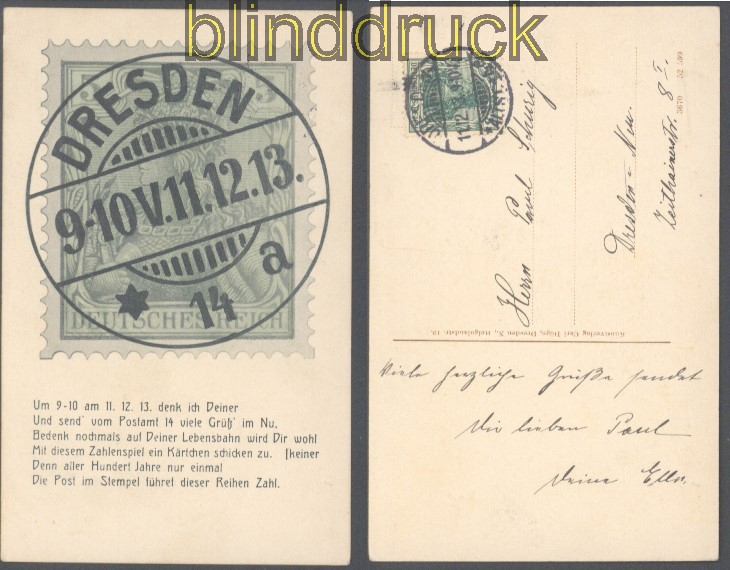 blinddruck
DRESDEN
9-10V.11.12.13.
14 a
DEUTSCHES REICH
Um 9-10 am 11. 12. 13. denk ich Deiner
Und send' vom Postamt 14 viele Grüß' im Nu,
Bedenk nochmals auf Deiner Lebensbahn wird Dir wohl
Mit diesem Zahlenspiel ein Kärtchen schicken zu. [keiner
Denn aller Hundert Jahre nur einmal
Die Post im Stempel führet dieser Reihen Zahl.
3670 52 599
Herrn Paul Schurig
Dresden-Neu.
Zeithainerstr. 8 I.
Kunstverlag Carl Döge, Dresden N., Helgolandstr. 19.
Viele herzliche Grüße sendet
Dir lieben Paul
Deine